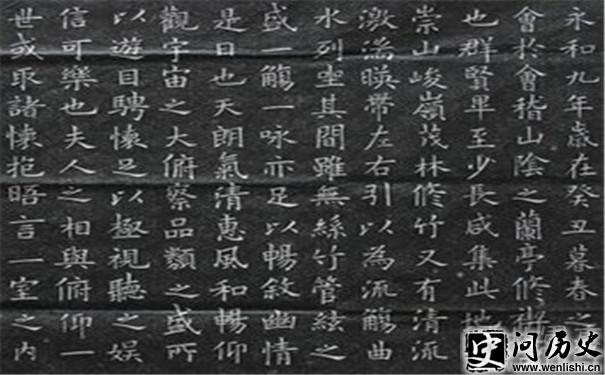 永和九年歲在癸丑暮春之
會於會稽山陰之蘭亭修禊
也群賢畢至少長咸集此地
崇山峻嶺茂林修竹又有清流
激湍暎帶左右引以為流觴曲
水列坐其間雖無絲竹管絃之
盛一觴一詠亦足以暢敘幽情
是日也天朗氣清惠風和暢仰
觀宇宙之大俯察品類之盛所
以遊目騁懷足以極視聽之娛
信可樂也夫人之相與俯仰一
世或取諸懷抱晤言一室之內
问历史
www.wenlishi.cn